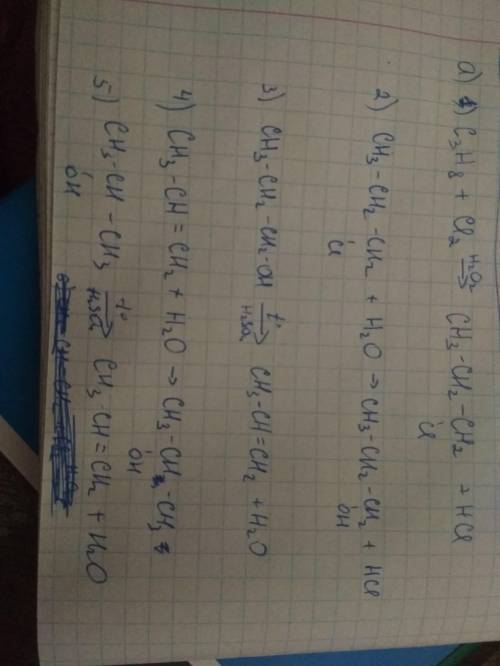 а) 1) C3H8 + Cl2 → CH3-CH2-CH2 + HCl
Cl
2) CH3-CH2-CH2 + H2O → CH3-CH2-CH2 + HCl
Cl OH
3) CH3-CH2-CH2-OH t° → CH3-CH=CH2 + H2O
4) CH3-CH=CH2 + H2O → CH3-CH-CH3
OH
5) CH3-CH-CH3 t° → CH3-CH=CH2 + H2O
OH